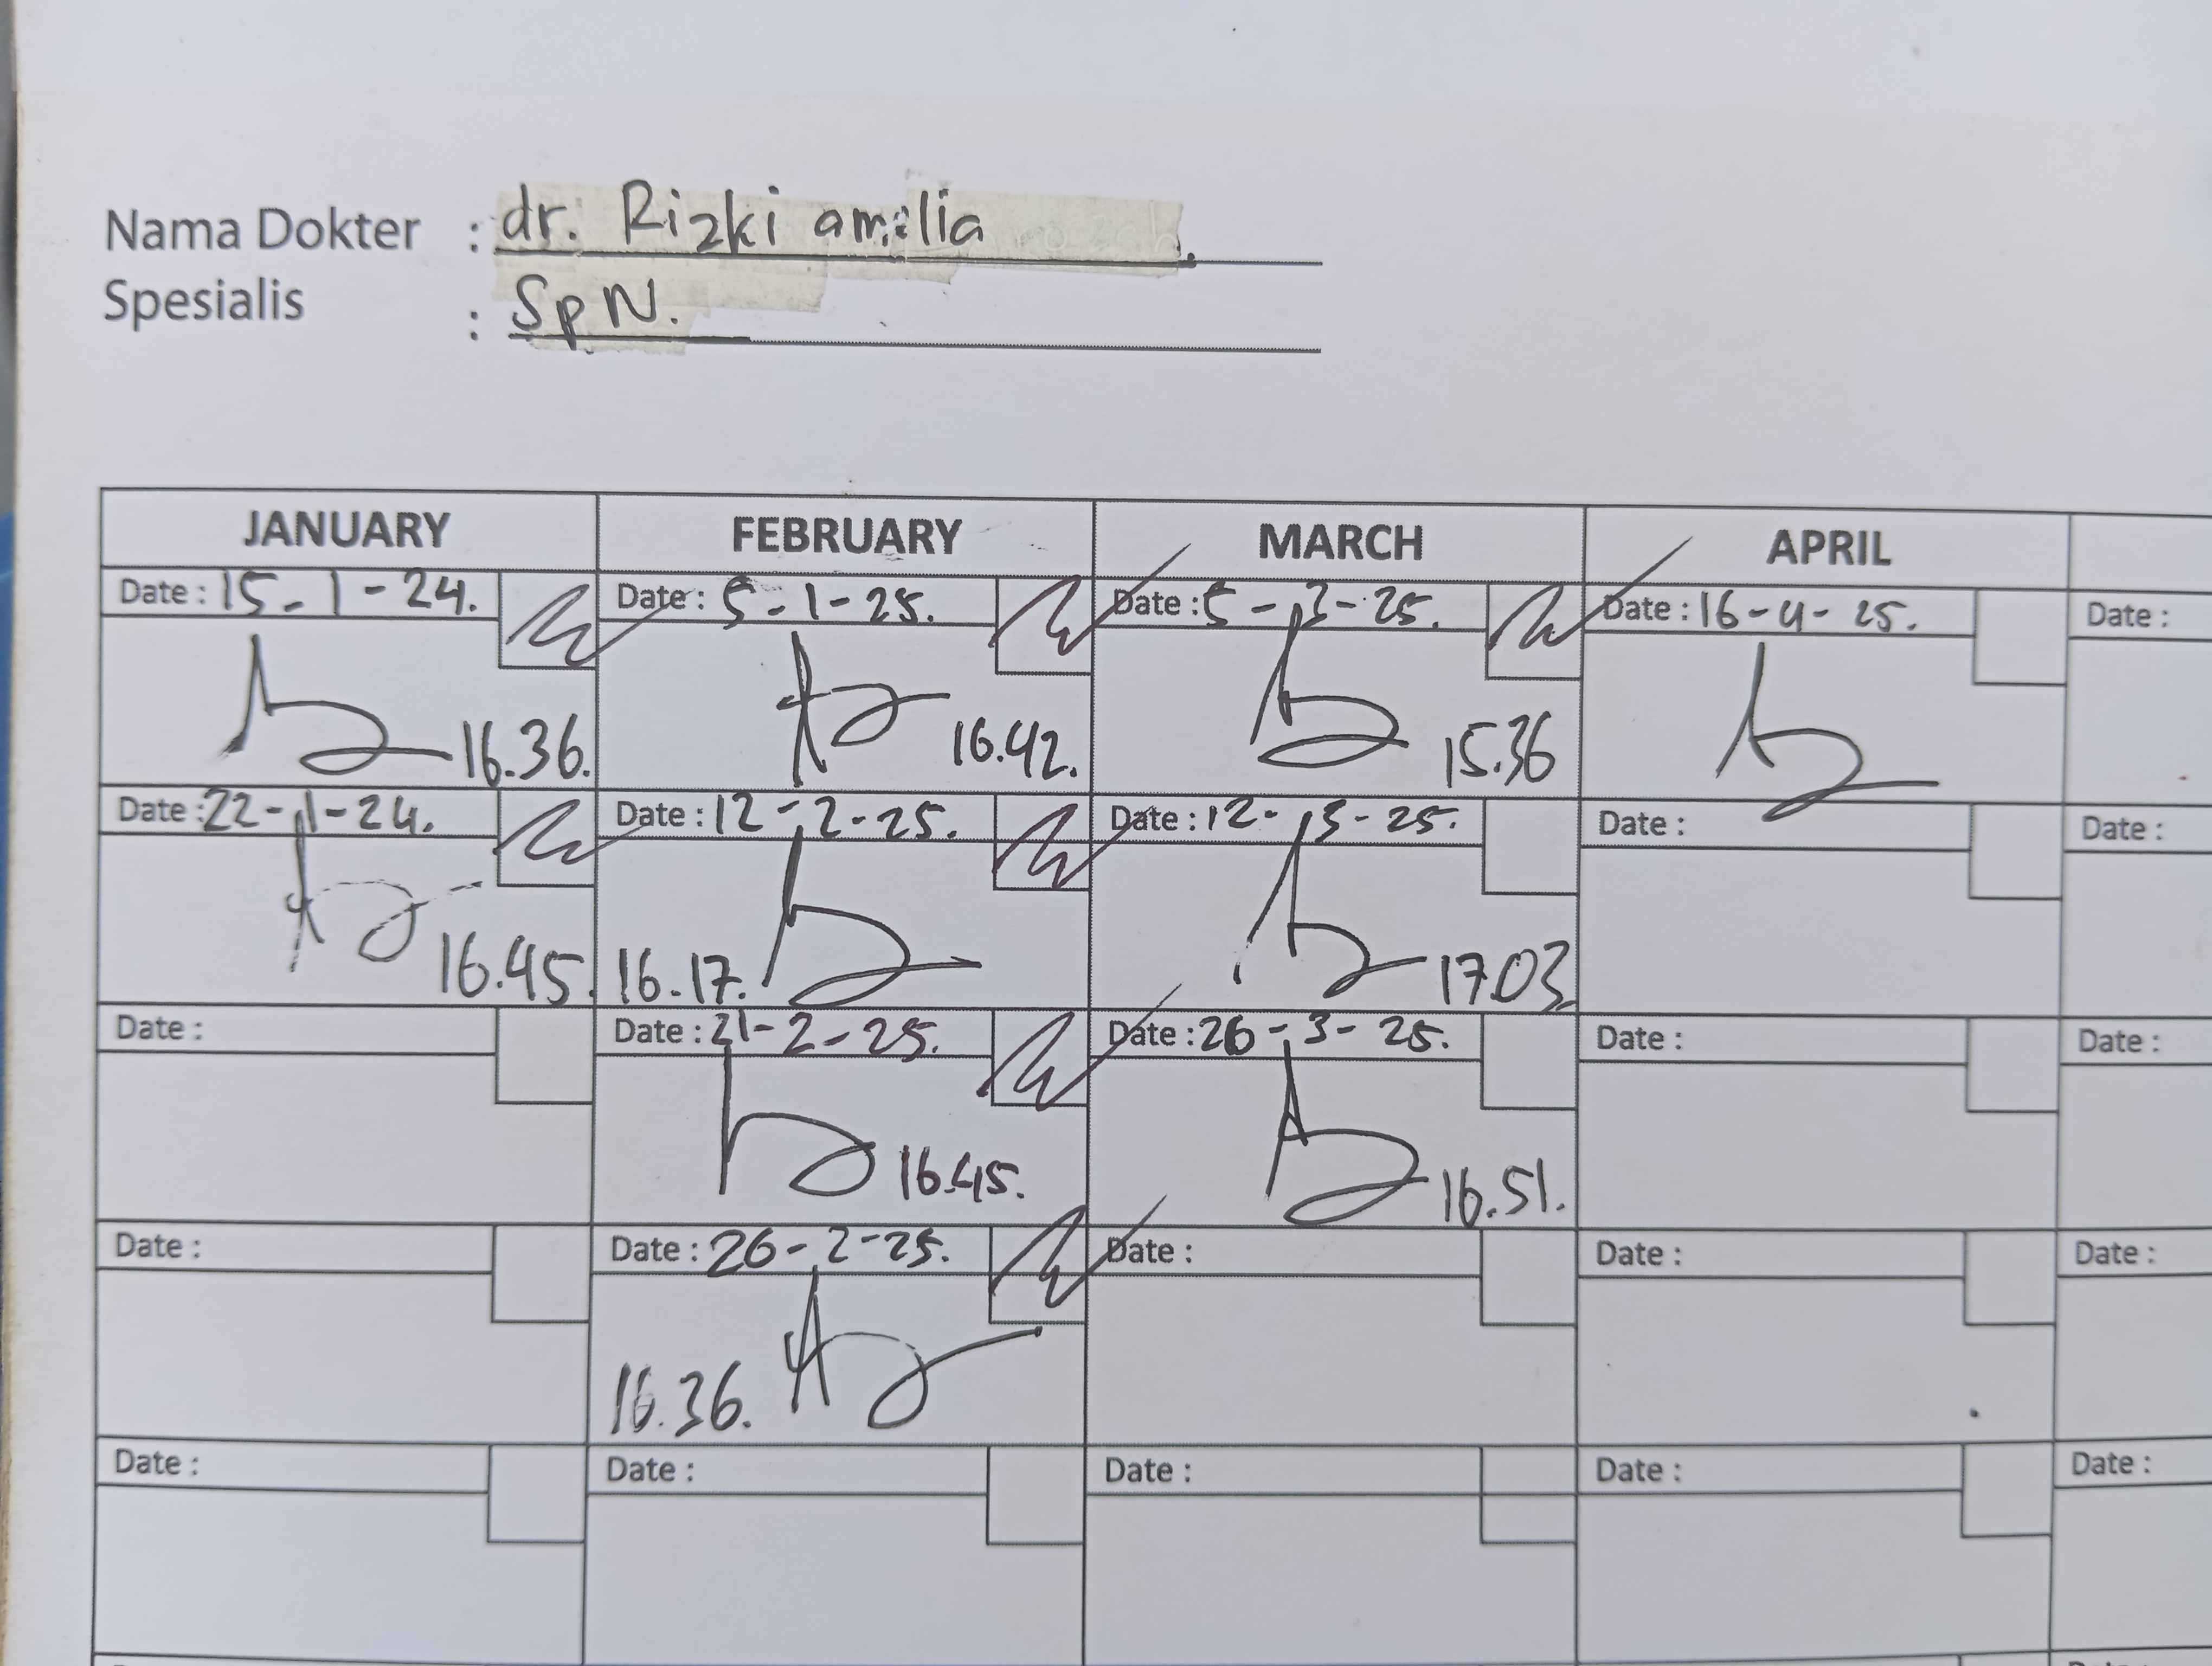 Nama Dokter : dr. Rizki amelia
Spesialis : SpN.
JANUARY FEBRUARY MARCH APRIL
Date : 15-1-24. Date : 5-1-25. Date : 5-3-25. Date : 16-4-25. Date :
16.36. 16.42. 15.36
Date : 22-1-24. Date : 12-2-25. Date : 12-3-25. Date : Date :
16.45. 16.17. 17.03
Date : Date : 21-2-25. Date : 26-3-25. Date : Date :
16.45. 16.51.
Date : Date : 26-2-25. Date : Date : Date :
16.36.
Date : Date : Date : Date : Date :